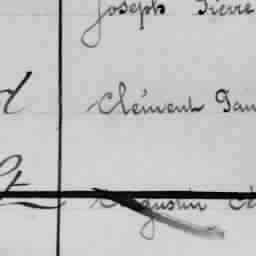 Joseph Pierre
Clément Pau
Augustin